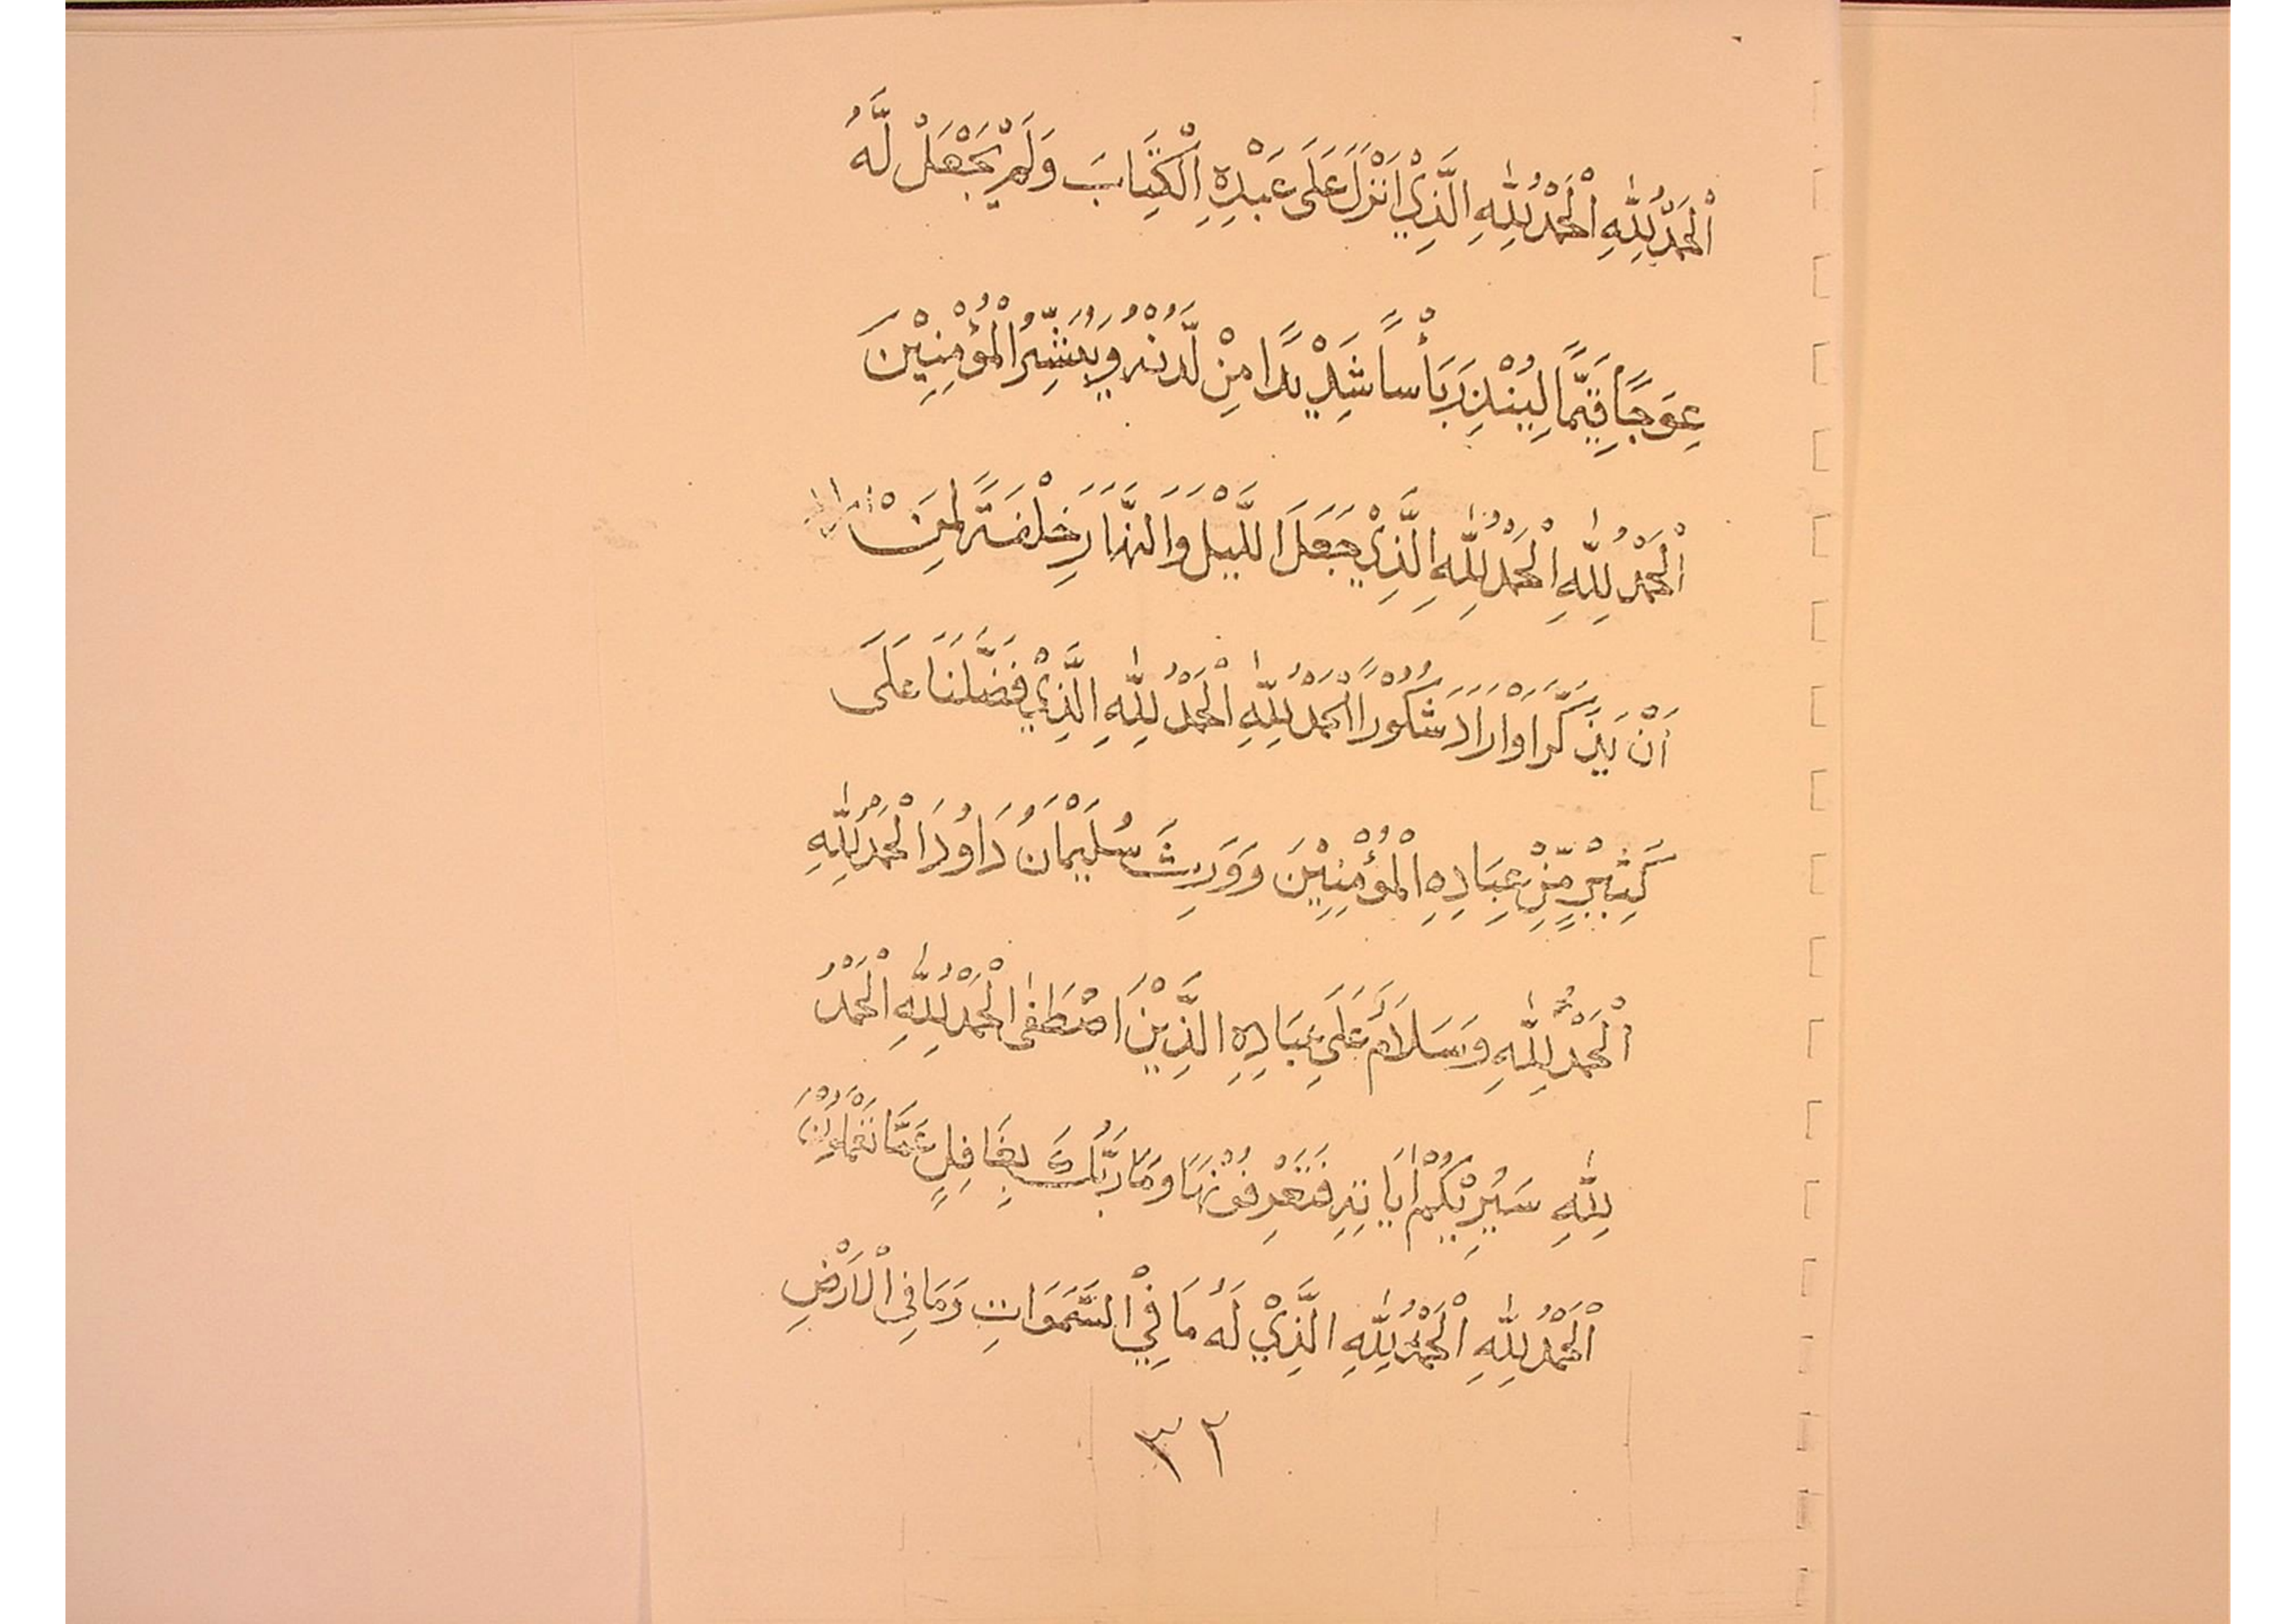 اَلْحَمْدُ لِلّٰهِ اَلْحَمْدُ لِلّٰهِ الَّذِيْ اَنْزَلَ عَلَى عَبْدِهِ الْكِتَابَ وَلَمْ يَجْعَلْ لَّهُ
عِوَجًا قَيِّمًا لِيُنْذِرَ بَأْسًا شَدِيْدًا مِنْ لَّدُنْهُ وَيُبَشِّرُ الْمُؤْمِنِيْنَ
اَلْحَمْدُ لِلّٰهِ اَلْحَمْدُ لِلّٰهِ الَّذِيْ جَعَلَ اللَّيْلَ وَالنَّهَارَ خِلْفَةً لِمَنْ
اَنْ يَذَّكَّرَ اَوْ اَرَادَ شَكُوْرًا اَلْحَمْدُ لِلّٰهِ اَلْحَمْدُ لِلّٰهِ الَّذِيْ فَضَّلَنَا عَلَى
كَثِيْرٍ مِّنْ عِبَادِهِ الْمُؤْمِنِيْنَ وَوَرِثَ سُلَيْمَانُ دَاوُدَ اَلْحَمْدُ لِلّٰهِ
اَلْحَمْدُ لِلّٰهِ وَسَلَامٌ عَلَى عِبَادِهِ الَّذِيْنَ اصْطَفٰى اَلْحَمْدُ لِلّٰهِ اَلْحَمْدُ
لِلّٰهِ سَيُرِيْكُمْ اٰيَاتِهِ فَتَعْرِفُوْنَهَا وَمَا رَبُّكَ بِغَافِلٍ عَمَّا تَعْمَلُوْنَ
اَلْحَمْدُ لِلّٰهِ اَلْحَمْدُ لِلّٰهِ الَّذِيْ لَهُ مَا فِيْ السَّمَوَاتِ وَمَا فِي الْاَرْضِ
٣٢